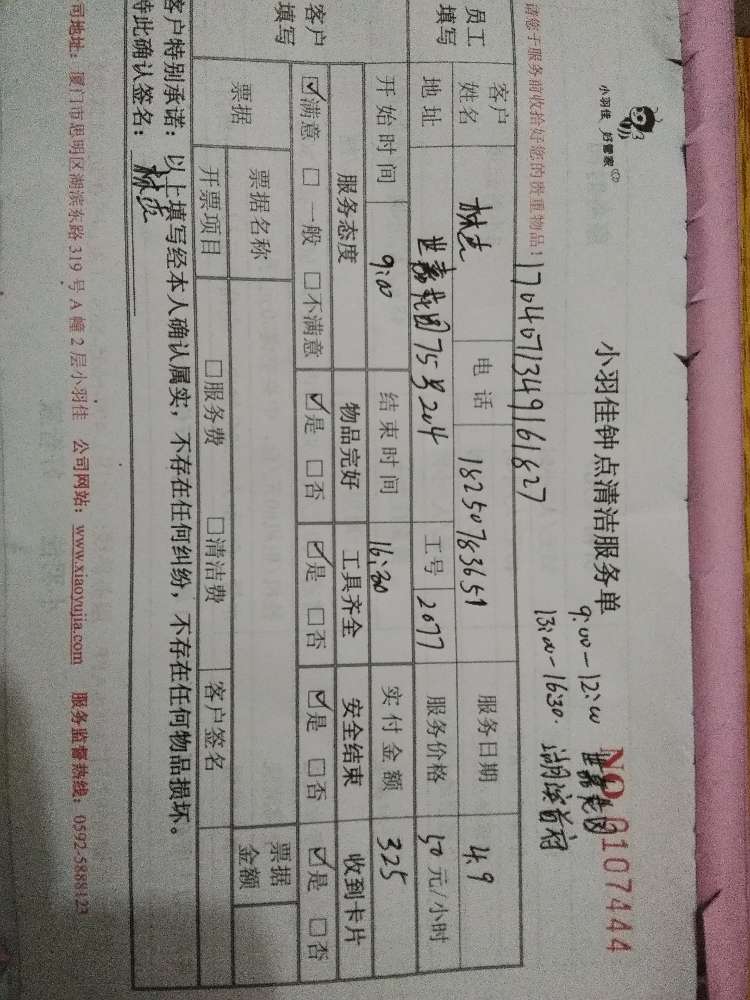 小羽佳 好管家
小羽佳钟点清洁服务单
9:00-12:00 世嘉花园
13:00-16:30. 湖滨首府
NO 0107444
请您于服务前收拾好您的贵重物品!
1704071349161827
员工填写
客户姓名
电话 18250783651
服务日期 4.9
地址 世嘉花园75号204
工号 2077
服务价格 50元/小时
开始时间 9:00
结束时间 16:30
实付金额 325
客户填写
服务态度 物品完好 工具齐全 安全结束 收到卡片
☑满意 □一般 □不满意 ☑是 □否 ☑是 □否 ☑是 □否 ☑是 □否
票据
票据名称
票据金额
开票项目 □服务费 □清洁费 客户签名
客户特别承诺:以上填写经本人确认属实,不存在任何纠纷,不存在任何物品损坏。
特此确认签名:
司地址:厦门市思明区湖滨东路319号A幢2层小羽佳 公司网站:www.xiaoyujia.com 服务监督热线:0592-5888123